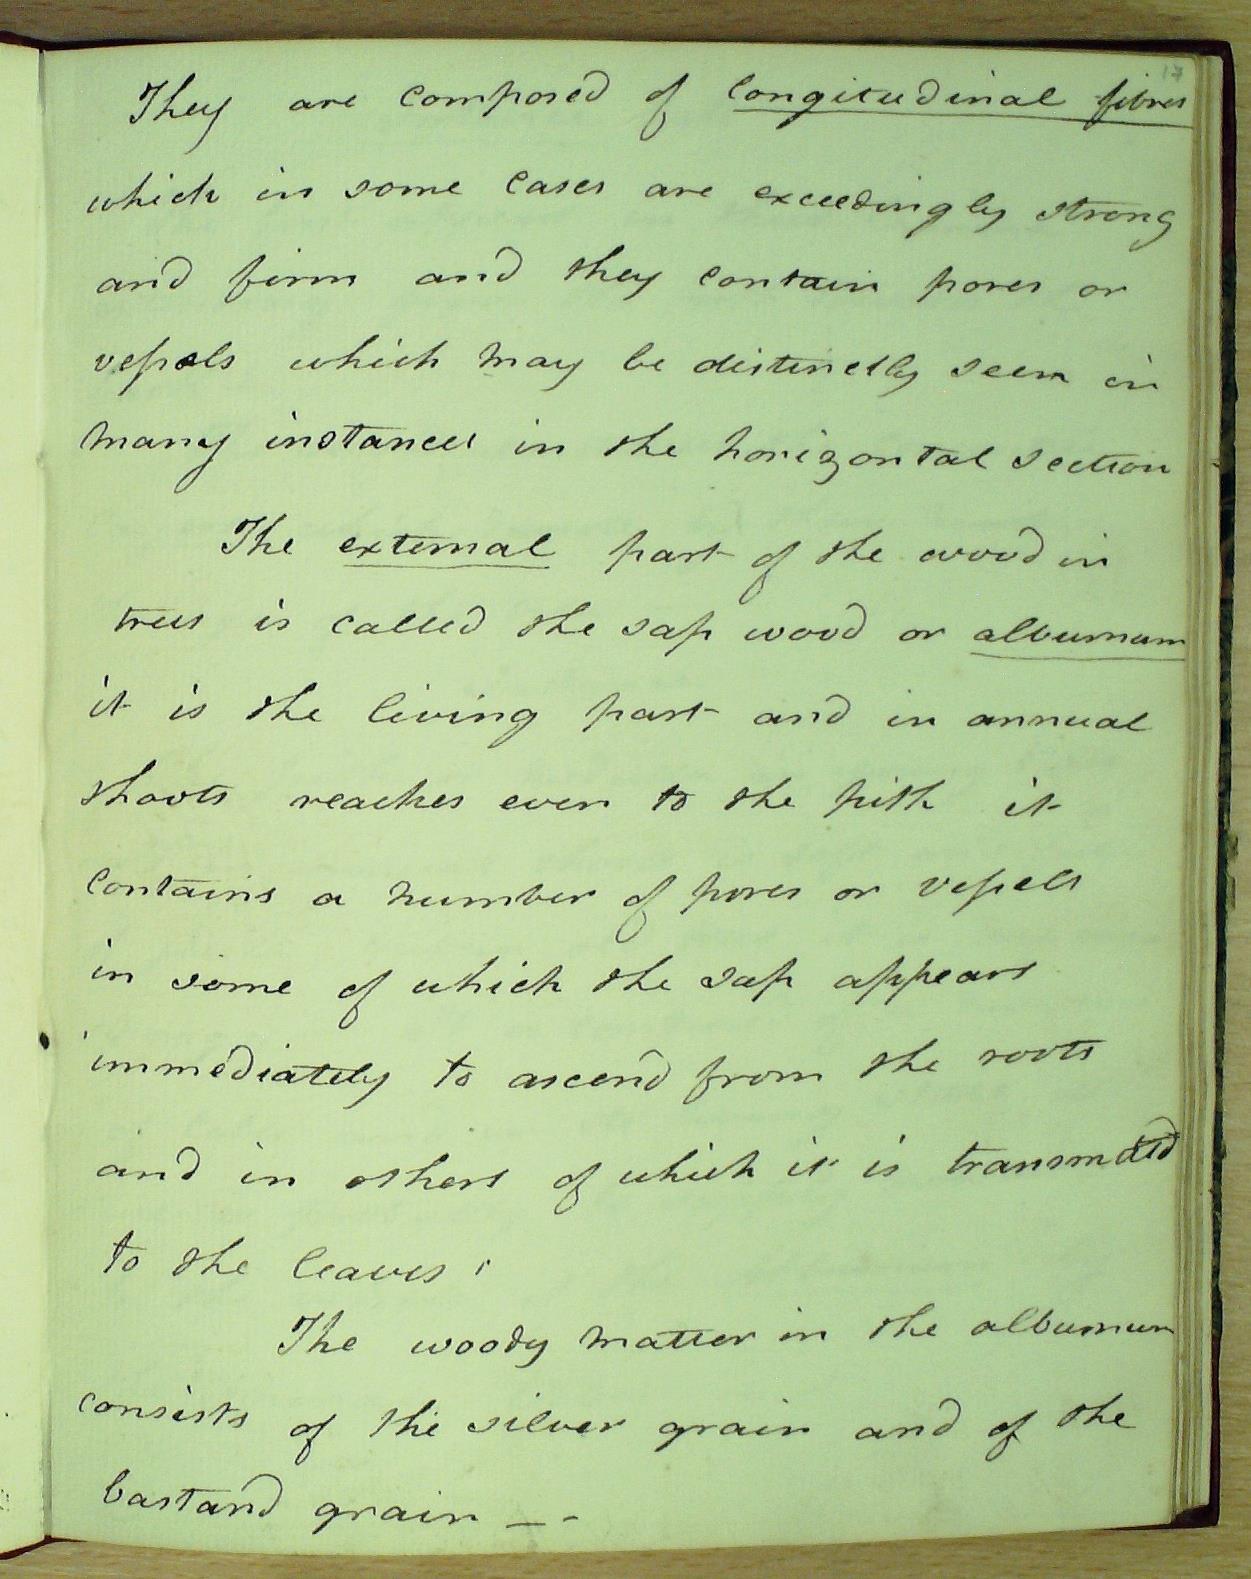 17
They are composed of longitudinal fibres
which in some cases are exceedingly strong
and firm and they contain pores or
vessels which may be distinctly seen in
many instances in the horizontal section
The external part of the wood in
trees is called the sap wood or alburnum
it is the living part and in annual
shoots reaches even to the pith it
contains a number of pores or vessels
in some of which the sap appears
immediately to ascend from the roots
and in others of which it is transmitted
to the leaves.
The woody matter in the alburnum
consists of the silver grain and of the
bastard grain — -